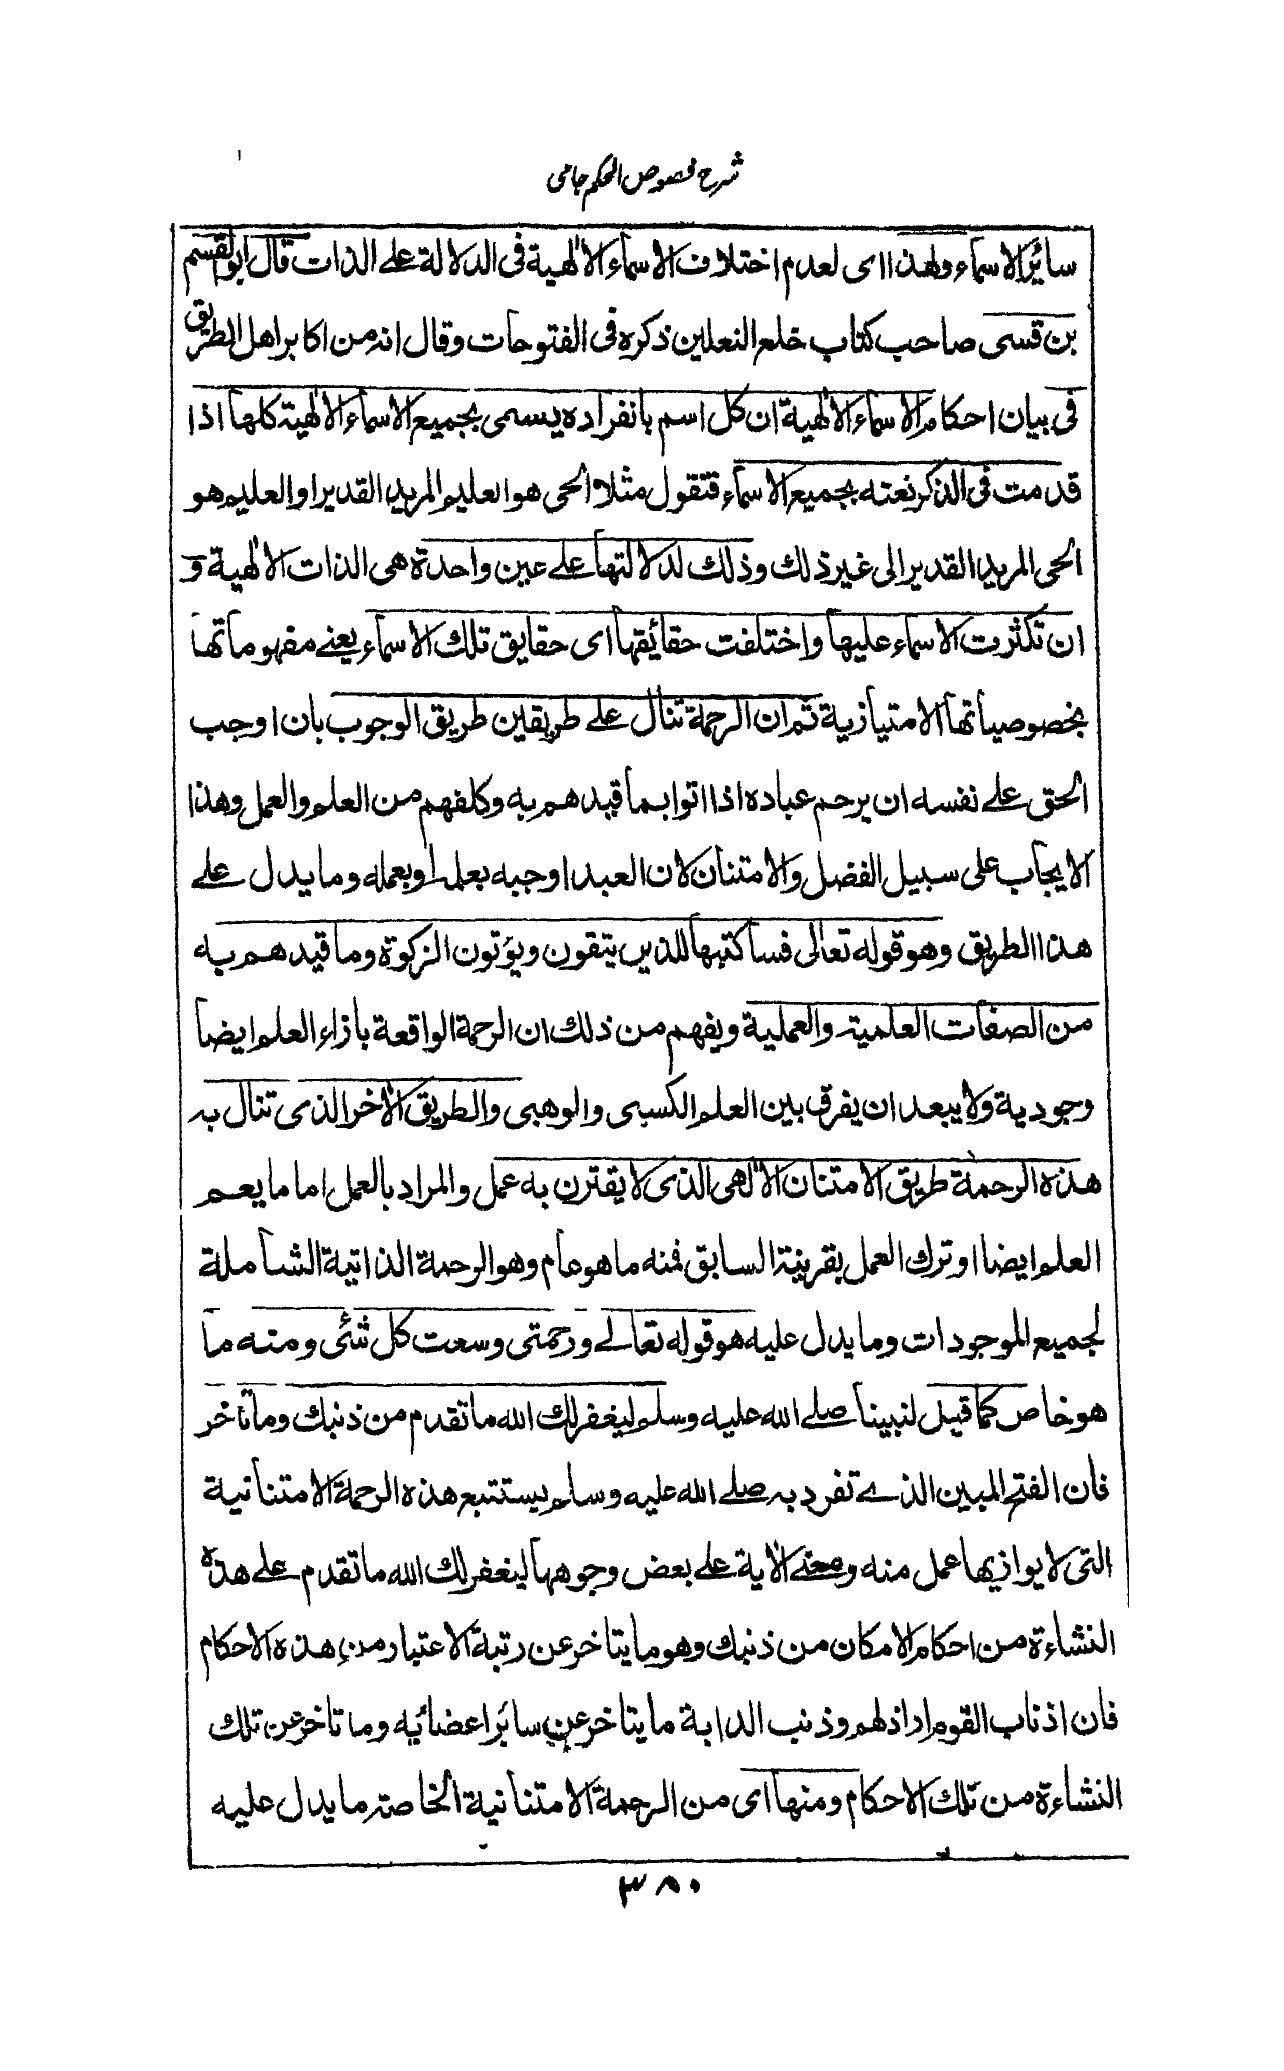 شرح فصوص الحكم جامی
سائر الاسماء ولهذا اى لعدم اختلاف الاسماء الالٰهية فى الدلالة علے الذات قال ابو القسم
بن قسى صاحب كتاب خلع النعلين ذكره فى الفتوحات وقال انه من اكابر اهل الطريق
فى بيان احكام الاسماء الالٰهية ان كل اسم بانفراده يسمى بجميع الاسماء الالٰهية كلها اذا
قدمت فى الذكر نعته بجميع الاسماء فتقول مثلا الحى هو العليم المريد القدير او العليم هو
الحى المريد القدير الى غير ذلك وذلك لدلالتها علے عين واحدة هى الذات الالٰهية و
ان تكثرت الاسماء عليها واختلفت حقائقها اى حقايق تلك الاسماء يعنے مفهوماتها
بخصوصياتها الامتيازية ثم ان الرحمة تنال علے طريقين طريق الوجوب بان اوجب
الحق علے نفسه ان يرحم عباده اذا اتوا بما قيدهم به وكلفهم من العلم والعمل وهذا
الايجاب على سبيل الفضل والامتنان لان العبد اوجبه بعلمه او بعمله وما يدل علے
هذا الطريق وهو قوله تعالٰى فسأكتبها للذين يتقون ويؤتون الزكوة وما قيدهم به
من الصفات العلمية والعملية ويفهم من ذلك ان الرحمة الواقعة بازاء العلم ايضا
وجودية ولا يبعد ان يفرق بين العلم الكسبى والوهبى والطريق الاٰخر الذى تنال به
هذه الرحمة طريق الامتنان الالٰهى الذى لا يقترن به عمل والمراد بالعمل اما ما يعم
العلم ايضا او ترك العمل بقرينة السابق فمنه ما هو عام وهو الرحمة الذاتية الشاملة
لجميع الموجودات وما يدل عليه هو قوله تعالے ورحمتى وسعت كل شئى ومنه ما
هو خاص كما قيل لنبينا صلے الله عليه وسلم ليغفر لك الله ما تقدم من ذنبك وما تاخر
فان الفتح المبين الذے تفرد به صلے الله عليه وسلم يستتبع هذه الرحمة الامتنانية
التى لا يوازيها عمل منه ومعنے الاٰية علے بعض وجوهها ليغفر لك الله ما تقدم علے هذه
النشاءة من احكام الامكان من ذنبك وهو ما يتاخر عن رتبة الاعتبار من هذه الاحكام
فان اذناب القوم اراذلهم وذنب الدابة ما يتاخر عن سائر اعضائيه وما تاخر عن تلك
النشاءة من تلك الاحكام ومنها اى من الرحمة الامتنانية الخاصة ما يدل عليه
٣٨٠